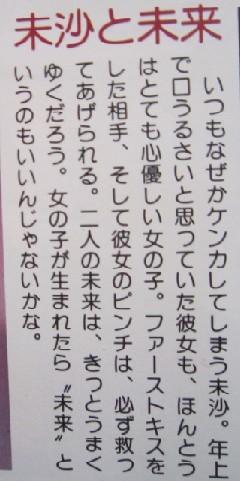 未沙と未来
いつもなぜかケンカしてしまう未沙。年上
で口うるさいと思っていた彼女も、ほんとう
はとても心優しい女の子。ファーストキスを
した相手、そして彼女のピンチは、必ず救っ
てあげられる。二人の未来は、きっとうまく
ゆくだろう。女の子が生まれたら〝未来〟と
いうのもいいんじゃないかな。